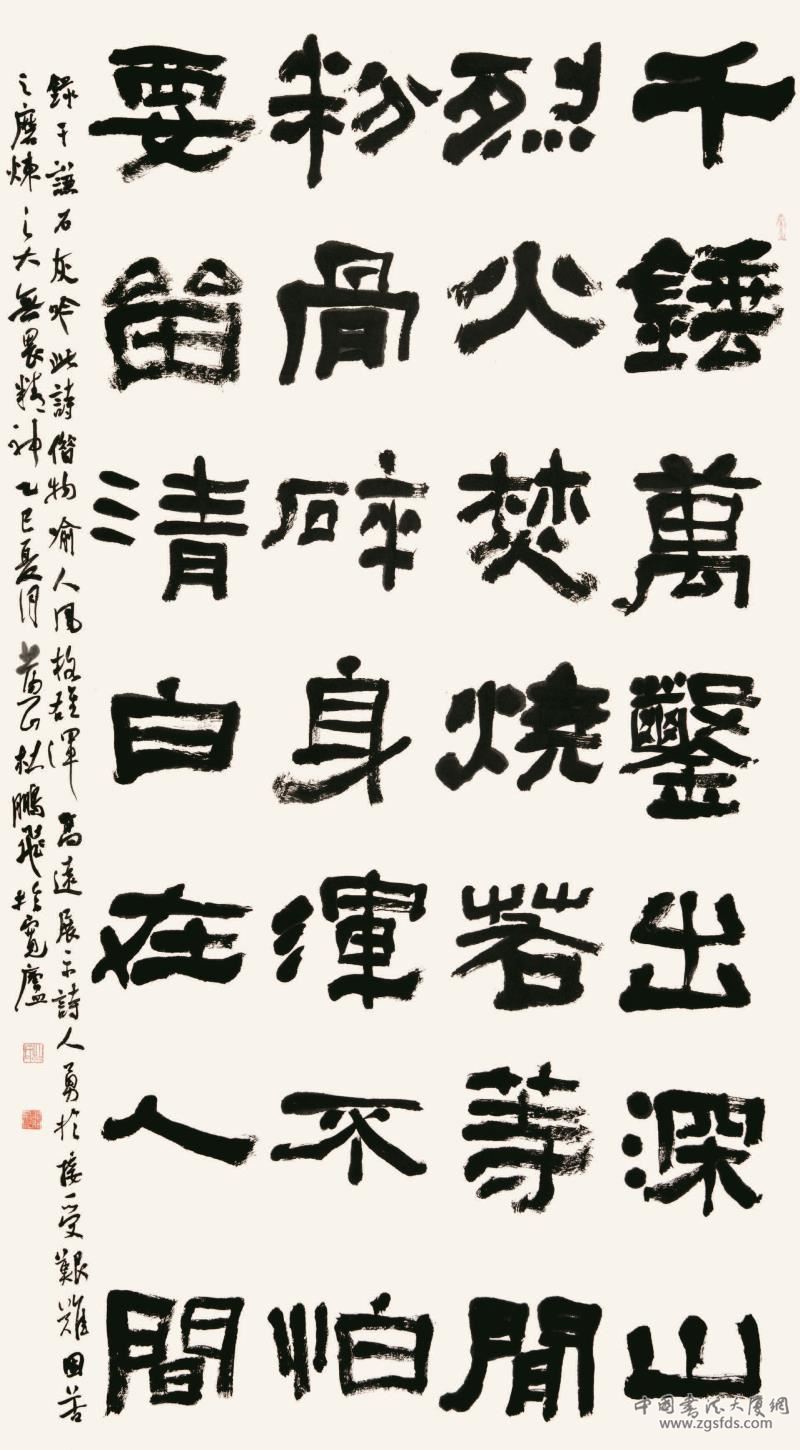 千錘萬鑿出深山
烈火焚燒若等閒
粉骨碎身渾不怕
要留清白在人間
錄于謙石灰吟此詩借物喻人風格雄渾高遠展示詩人勇於接受艱難困苦
之磨煉之大無畏精神乙巳夏月萬石杜鵬飛於寬廬
中國書法大廈網
www.zgsfds.com